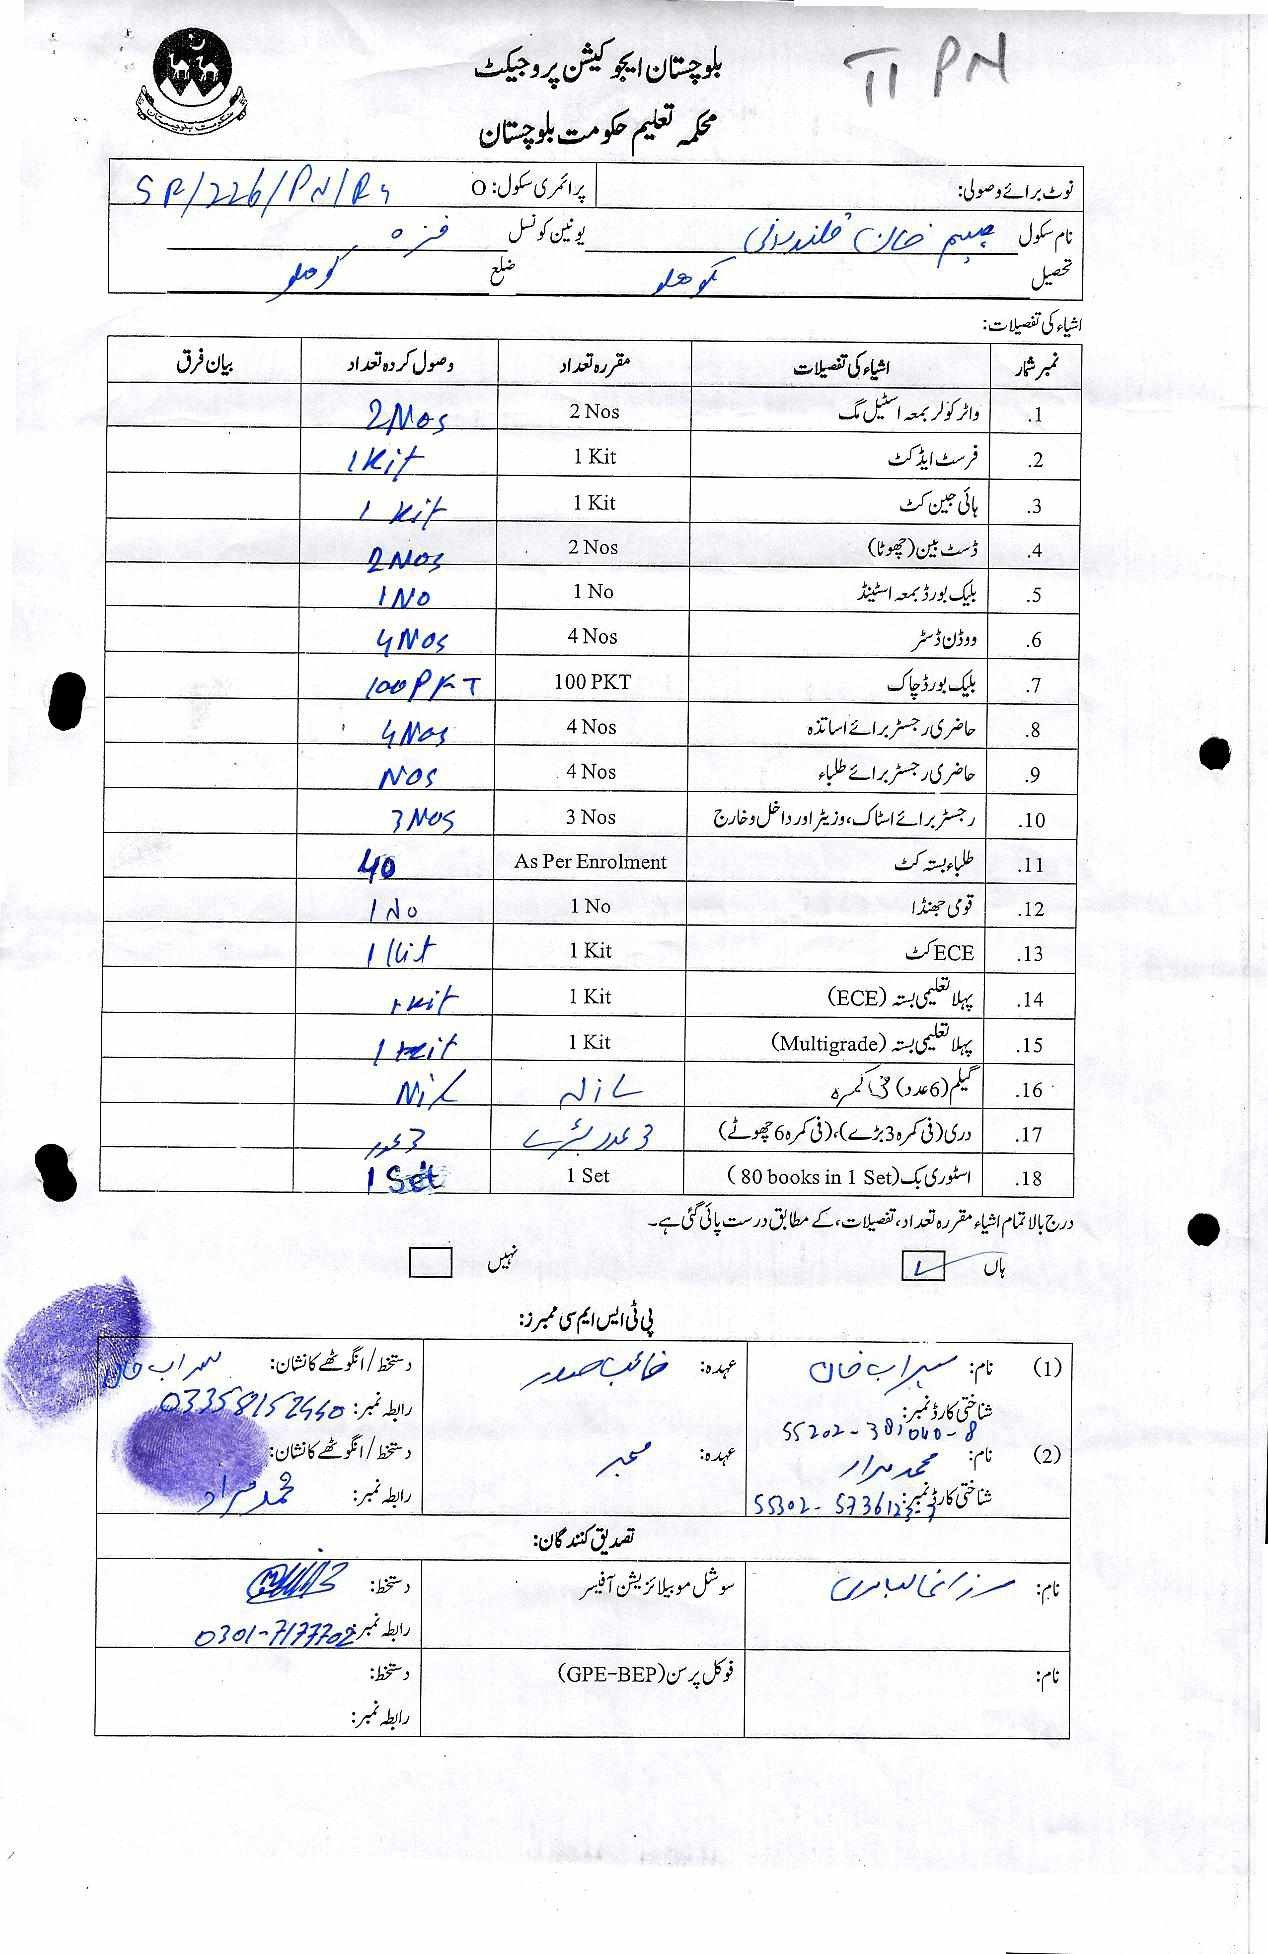 TI PN
بلوچستان ایجوکیشن پروجیکٹ
محکمہ تعلیم حکومت بلوچستان
حکومت بلوچستان
نوٹ برائے وصولی: پرائمری سکول: O SR/226/PN/R4
نام سکول خان قلندرانی یونین کونسل
تحصیل کوہلو ضلع کوہلو
اشیاء کی تفصیلات:
نمبر شمار اشیاء کی تفصیلات مقررہ تعداد وصول کردہ تعداد بیان فرق
1. واٹر کولر بمعہ اسٹیل مگ 2 Nos 2 Nos
2. فرسٹ ایڈ کٹ 1 Kit 1 Kit
3. ہائی جین کٹ 1 Kit 1 Kit
4. ڈسٹ بین (چھوٹا) 2 Nos 2 Nos
5. بلیک بورڈ بمعہ اسٹینڈ 1 No 1 No
6. ووڈن ڈسٹر 4 Nos 4 Nos
7. بلیک بورڈ چاک 100 PKT 100 PKT
8. حاضری رجسٹر برائے اساتذہ 4 Nos 4 Nos
9. حاضری رجسٹر برائے طلباء 4 Nos Nos
10. رجسٹر برائے اسٹاک، وزیٹر اور داخل و خارج 3 Nos 3 Nos
11. طلباء بستہ کٹ As Per Enrolment 40
12. قومی جھنڈا 1 No 1 No
13. ECE کٹ 1 Kit 1 Kit
14. پہلا تعلیمی بستہ (ECE) 1 Kit 1 Kit
15. پہلا تعلیمی بستہ (Multigrade) 1 Kit 1 Kit
16. گیلم (6 عدد) فی کمرہ Nil
17. دری (فی کمرہ 3 بڑے)، (فی کمرہ 6 چھوٹے) 3 عدد بڑے 3 عدد
18. اسٹوری بک (80 books in 1 Set) 1 Set 1 Set
درج بالا تمام اشیاء مقررہ تعداد، تفصیلات، کے مطابق درست پائی گئی ہے۔
ہاں نہیں
پی ٹی ایس ایم سی ممبرز:
(1) نام: سہراب خان عہدہ: نائب صدر دستخط / انگوٹھے کا نشان: سہراب خان
شناختی کارڈ نمبر: 55202-381040-8 رابطہ نمبر: 03358152440
(2) نام: محمد مراد عہدہ: ممبر دستخط / انگوٹھے کا نشان:
شناختی کارڈ نمبر: رابطہ نمبر: محمد مراد
تصدیق کنندگان:
نام: سوشل موبیلائزیشن آفیسر دستخط:
رابطہ نمبر: 0301-7177702
نام: فوکل پرسن (GPE-BEP) دستخط:
رابطہ نمبر: